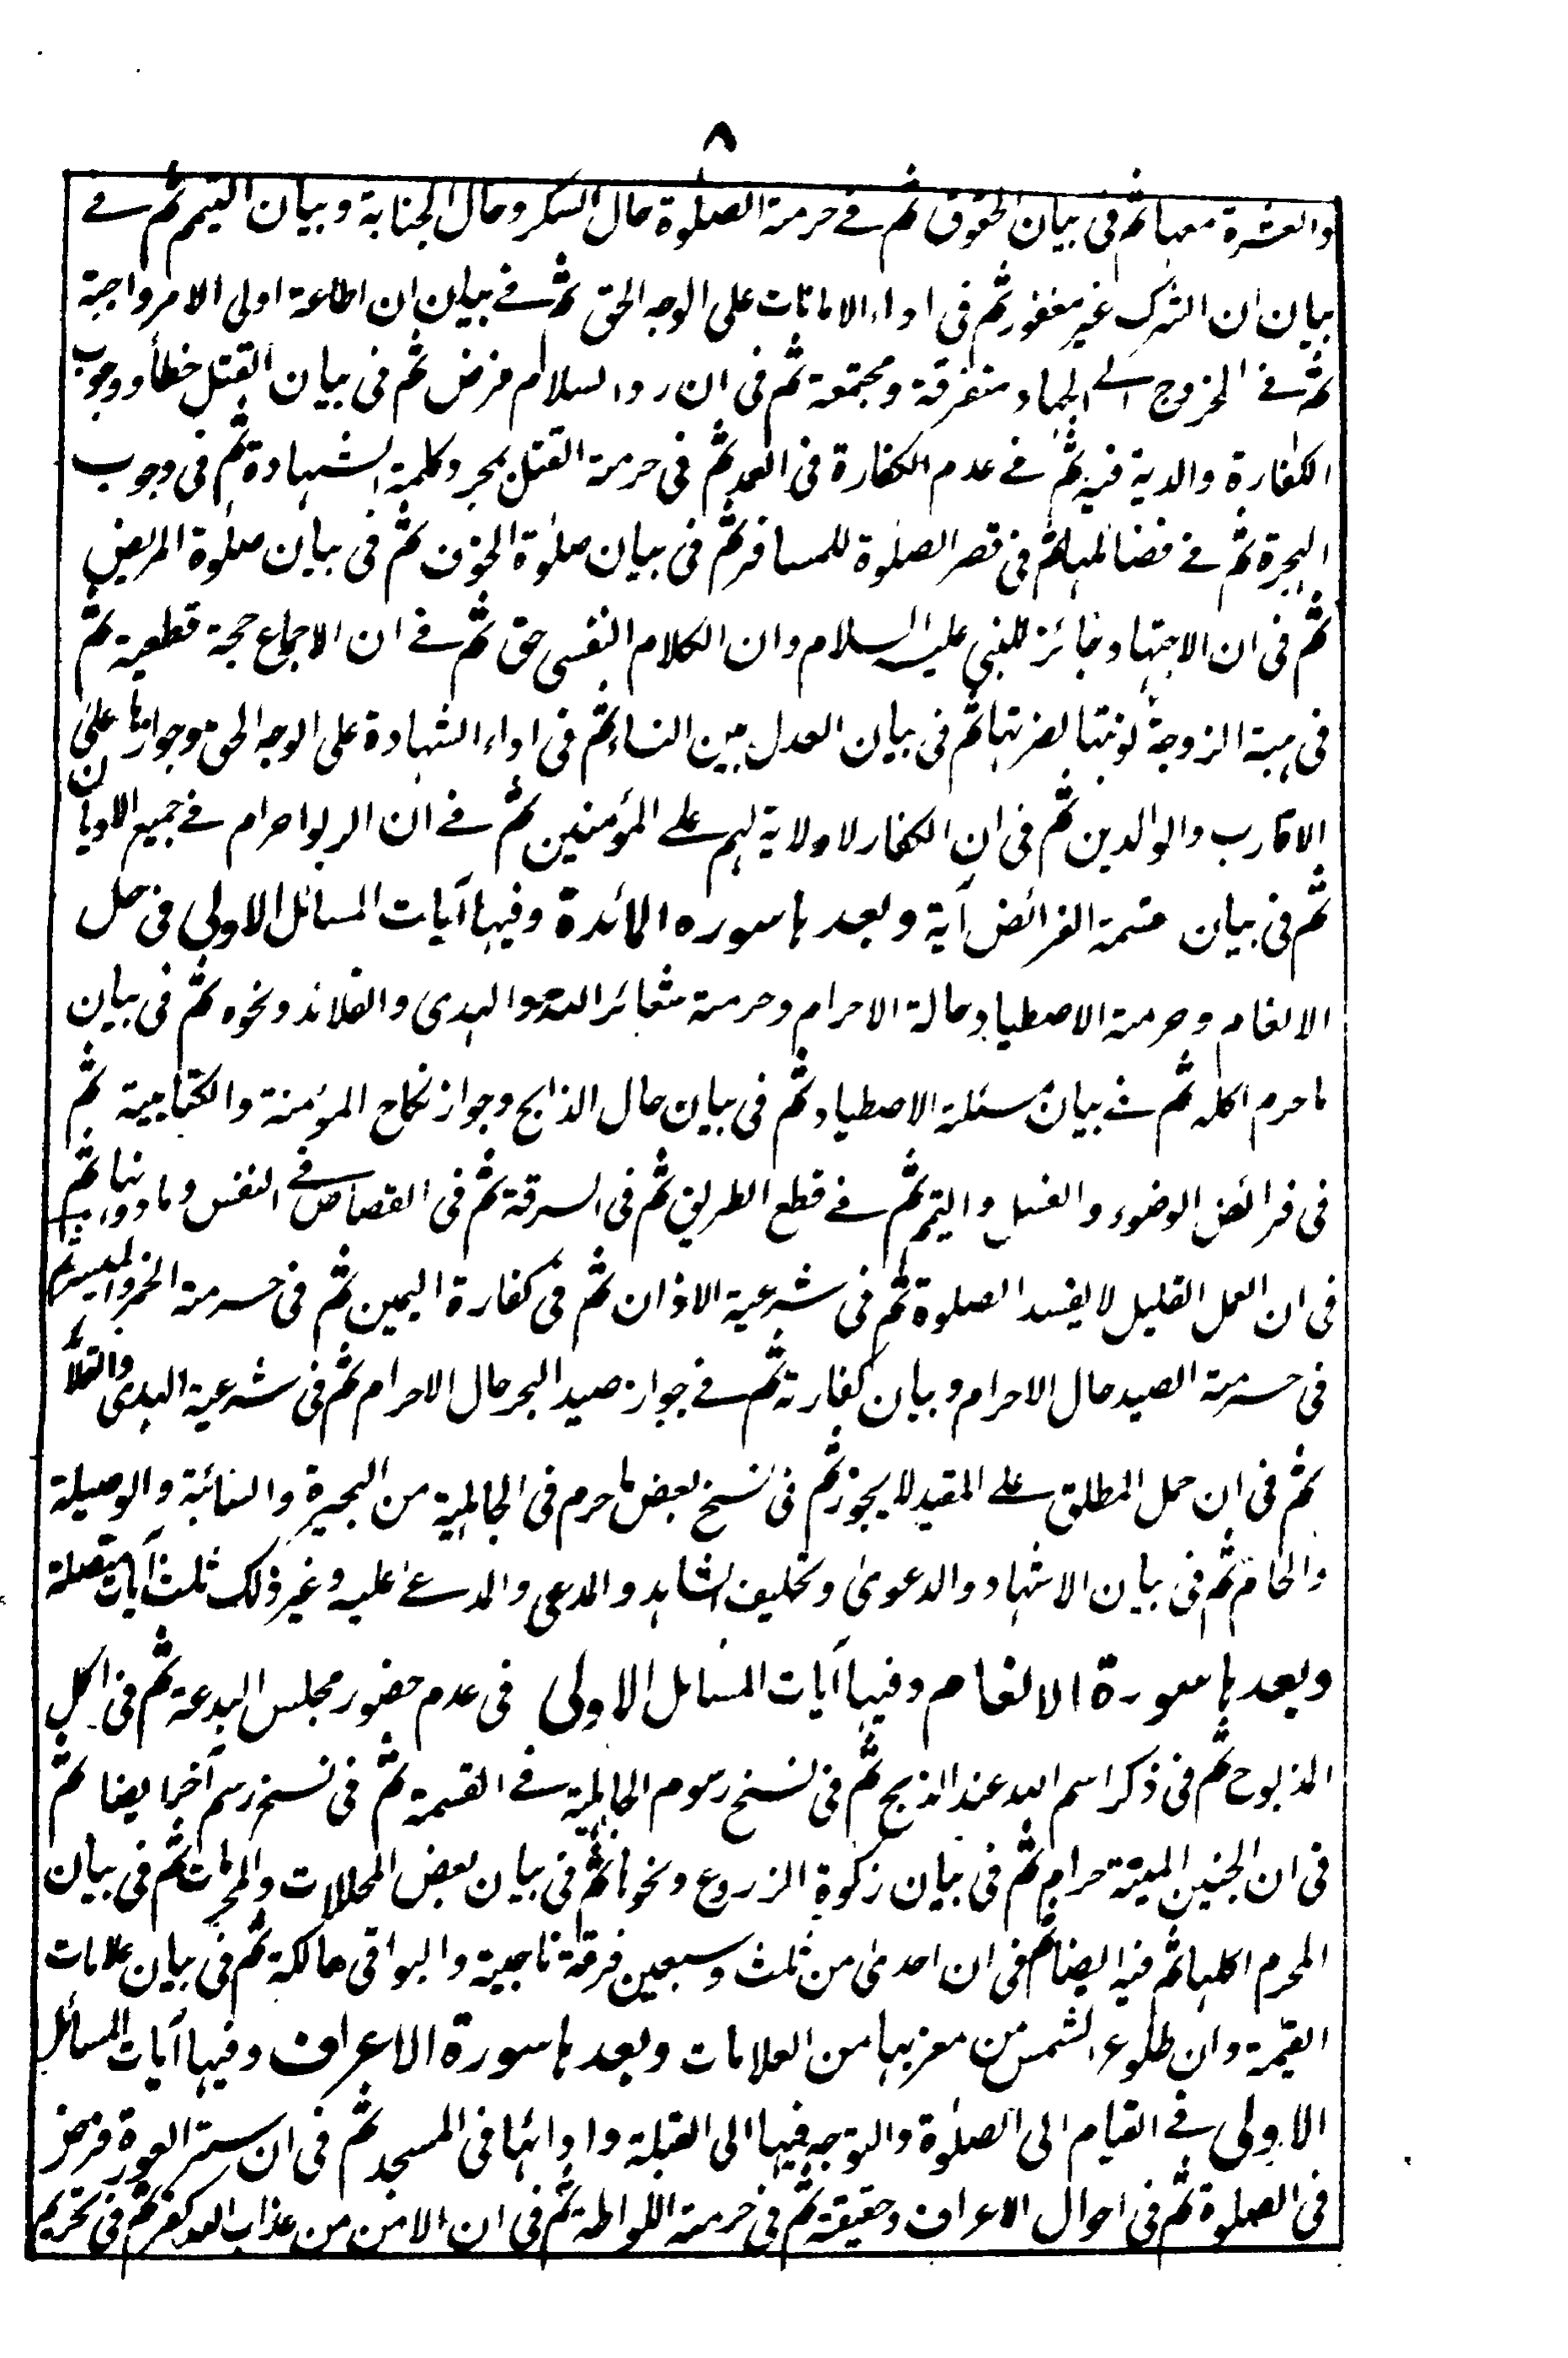 ٨
والعشرة معها ثم فى بيان الحقوق ثم فے حرمة الصلوة حال السكر وحال الجنابة وبيان التيمم ثم فے
بيان ان الشرك غير مغفور ثم فى اداء الامانات على الوجه الحق ثم فے بيان ان اطاعة اولى الامر واجبة
ثم فے الخروج الے الجهاد متفرقة ومجتمعة ثم فى ان رد السلام فرض ثم فى بيان القتل خطأ ووجوب
الكفارة والدية فيه ثم فے عدم الكفارة فى العمد ثم فى حرمة القتل بمجرد كلمة الشهادة ثم فى وجوب
الهجرة ثم فے فضائلها ثم فى قصر الصلوة للمسافر ثم فى بيان صلوة الخوف ثم فى بيان صلوة المريض
ثم فى ان الاجتهاد جائز للنبي عليه السلام وان الكلام النفسى حق ثم فے ان الاجماع حجة قطعية ثم
فى هبة الزوجة نوبتها لضرتها ثم فى بيان العدل بين النساء ثم فى اداء الشهادة على الوجه الحق وجوازها على
الاقارب والوالدين ثم فى ان الكفار لا ولاية لهم على المؤمنين ثم فے ان الربوا حرام فے جميع الاديان
ثم فى بيان قسمة الفرائض آية وبعدها سوره المائدة وفيها آيات المسائل الاولى فى حل
الانعام وحرمة الاصطياد حالة الاحرام وحرمة شعائر الله والهدى والقلائد ونحوه ثم فى بيان
ما حرم اكله ثم فے بيان مسئلة الاصطياد ثم فى بيان حال الذابح وجواز نكاح المؤمنة والكتابية ثم
فى فرائض الوضوء والغسل والتيمم ثم فے قطع الطريق ثم فى السرقة ثم فى القصاص فے النفس وما دونها ثم
فى ان العمل القليل لا يفسد الصلوة ثم فى شرعية الاذان ثم فى كفارة اليمين ثم فى حرمة الخمر والميسر ثم
فى حرمة الصيد حال الاحرام وبيان كفارته ثم فے جواز صيد البحر حال الاحرام ثم فى شرعية الهدى والقلائد
ثم فى ان حمل المطلق على المقيد لا يجوز ثم فى نسخ بعض ما حرم فى الجاهلية من البحيرة والسائبة والوصيلة
والحام ثم فى بيان الاشهاد والدعوىٰ وتحليف الشاهد والمدعى والمدعے عليه وغير ذلك ثلث آيات متصلة
وبعدها سورة الانعام وفيها آيات المسائل الاولى فى عدم حضور مجلس البدعة ثم فى اكل
المذبوح ثم فى ذكر اسم الله عند الذبح ثم فى نسخ رسوم الجاهلية فے القسمة ثم فى نسخ رسم آخر ايضا ثم
فى ان الجنين الميتة حرام ثم فى بيان زكوة الزروع ونحوها ثم فى بيان بعض المحللات والمحرمات ثم فى بيان
المحرم اكلها ثم فيه ايضا ثم فى ان احدىٰ من ثلث وسبعين فرقة ناجية والبواقى هالكة ثم فى بيان علامات
القيمة وان طلوع الشمس من مغربها من العلامات وبعدها سورة الاعراف وفيها آيات المسائل
الاولى فے القيام الى الصلوة والتوجه فيها الى القبلة وادائها فى المسجد ثم فى ان ستر العورة فرض
فى الصلوة ثم فى احوال الاعراف وحقيقته ثم فى حرمة اللواطة ثم فى ان الامن من عذاب الله كفر ثم فى تحريم